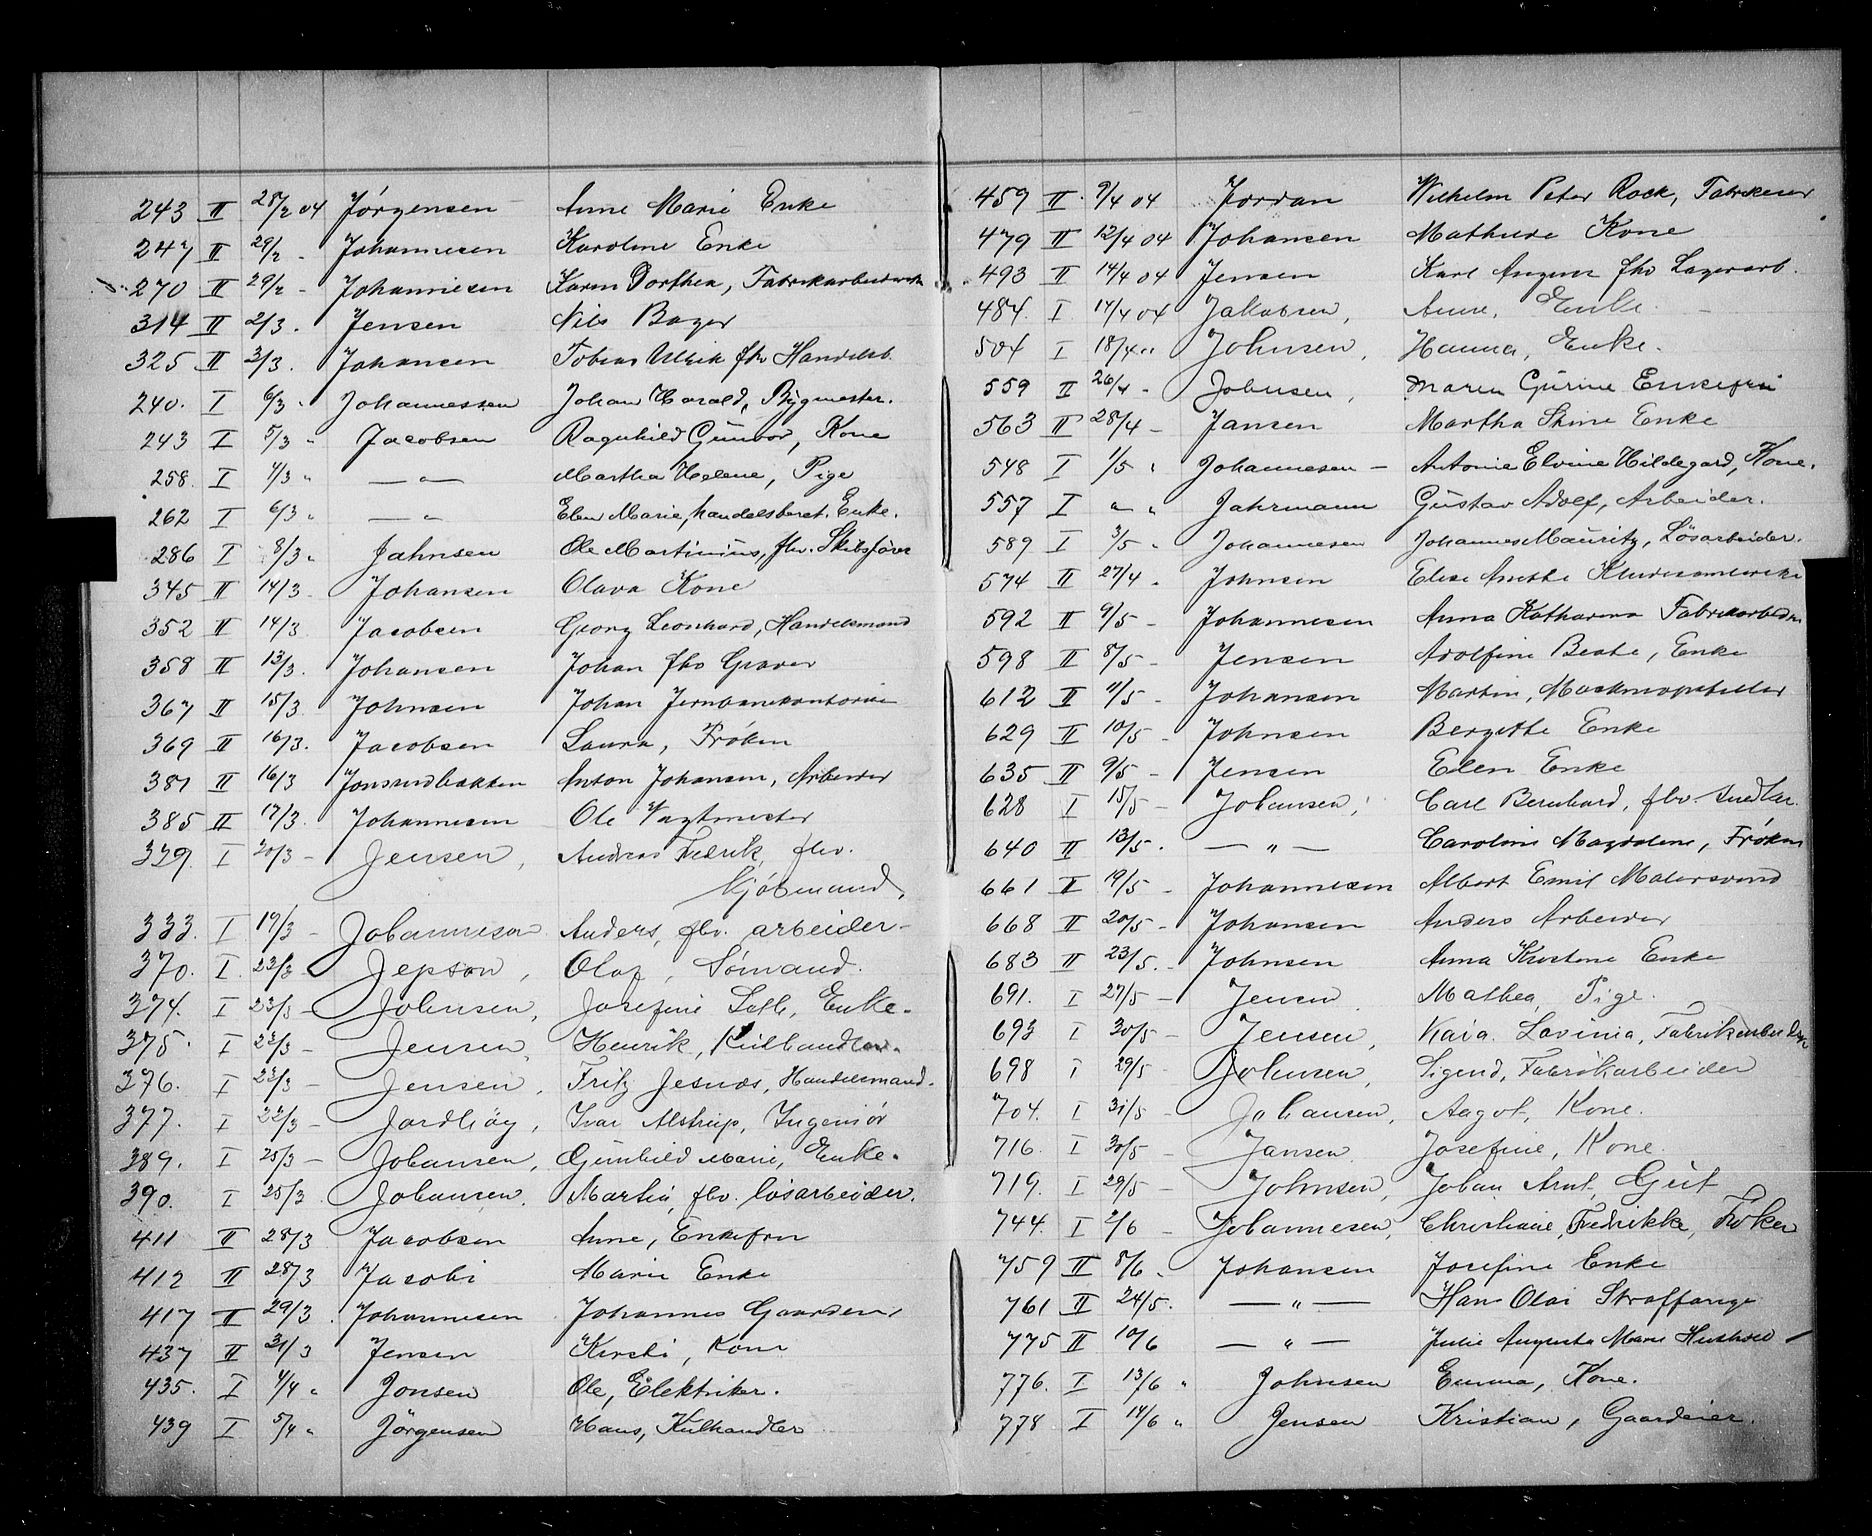 243 II 28/2 04 Jörgensen Anne Marie Enke
247 II 29/2 - Johannesen Karoline Enke
270 II 29/2 - Johannesen Karen Dorthea, Fabrikarbeiderske
314 II 2/3. Jensen Nils Bager
325 II 3/3. Johansen Tobias Ulrik fhv Handelsb.
240. I 6/3 " Johannessen Johan Harald, Bygmester.
243 I 5/3 " Jacobsen Ragnhild Gunvor, Kone
258. I 4/3 " — " — Martha Helene, Pige
262 I 6/3 " — " Elen Marie, handelsberet. Enke.
286 I 8/3 " Jahnsen Ole Martinius, fhv. Skibsfører
345 II 14/3 - Johansen Olava Kone
352 II 14/3 Jacobsen Georg Leonhard, Handelsmand
358 II 13/3. Johansen Johan fhv Graver
367 II 15/3 Johnsen Johan Jernbanekontorist
369 II 16/3. Jacobsen Laura, Frøken
381 II 16/3 Jonsrudbakken Anton Johansen, Arbeider
385 II 17/3. Johannesen Ole Vagtmester
329. I 20/3 - Jensen, Andreas Fredrik, fhv.
Kjøbmand,
333. I 19/3 - Johannesen Anders, fhv. arbeider -
370. I. 23/3 - Jepson, Olaf, Sømand.
374. I 23/3 - Johnsen, Josefine Seth, Enke.
375. I 22/3 - Jensen, Henrik, Kulhandler.
376. I 23/3 - Jensen, Fritz Jesnæs, Handelsmand.
377. I 22/3 - Jordhøy, Ivar Alstrup, Ingeniør
389. I 25/3 - Johansen, Gunhild Marie, Enke.
390. I 25/3 Johansen, Martin, fhv. løsarbeider.
411 II 28/3 Jacobsen Anne, Enkefru
412 II 28/3 Jacobi Marie Enke
417 II 29/3. Johannesen Johannes Gaardeier
437 II 31/3 Jensen Kersti, Kone
435. I 4/4 " Jonsen Ole, Elektriker.
439 I 5/4 " Jörgensen Hans, Kulhandler
459 II 9/4 04 Jordan Wilhelm Peter Rock, Fabrikeier
479 II 12/4 04 Johansen Mathilde Kone
493 II 14/4 04 Jensen Karl August fhv Lagerarb.
484. I 14/4 04 Jakobsen, Anne, Enke.
504 I 18/4 " Johnsen, Hanna, Enke.
559 II 26/4 - Johnsen, Maren Gurine Enkefru
563 II 28/4 - Jansen Martha Stine Enke
548 I 1/5 " Johannesen - Antonie Elvine Hildegard, Kone.
557 I " " Jahrmann Gustav Adolf, Arbeider.
589 I 3/5 " Johannesen Johannes Mauritz, Lösarbeider.
574 II 27/4 " Johnsen Elise Anette
592 II 9/5 - Johannesen Anna Katharina Fabrikarbeider
598 II 8/5 - Jensen Adolfine Beate, Enke
612 II 11/5 - Johansen Martin, Maskinopstiller
629 II 10/5 - Johnsen Bergitte Enke
635 II 9/5 - Jensen Elen Enke
628 I 15/5 - Johansen, Carl Bernhard, fhv. Snedker.
640 II 13/5. — " — Caroline Magdalene, Frøken
661 II 19/5 - Johannesen Albert Emil Malersvend
668 II 20/5 - Johansen Anders Arbeider
683 II 23/5. - Johnsen Anna Kristine Enke
691. I 27/5 - Jensen Mathea, Pige.
693 I 30/5 - Jensen, Kaia Lovinia, Fabrikarbeiderske
698 I 29/5 - Johnsen, Sigurd, Fabrikarbeider
704. I 31/5 - Johansen, Aagot, Kone.
716. I 30/5 - Jansen Josefine, Kone.
719. I 29/5 - Johnsen, Johan Arnt, Gut
744. I 2/6 - Johannesen, Christiane, Fredrikke, Frøken
759 II 8/6 - Johansen Josefine Enke
761 II 24/5. — " — Hans Olai Straffange
775 II 10/6 — " — Julie Augusta Marie
776. I 13/6 " Johnsen Emma, Kone.
778. I 14/6 " Jensen Kristian, Gaardeier.